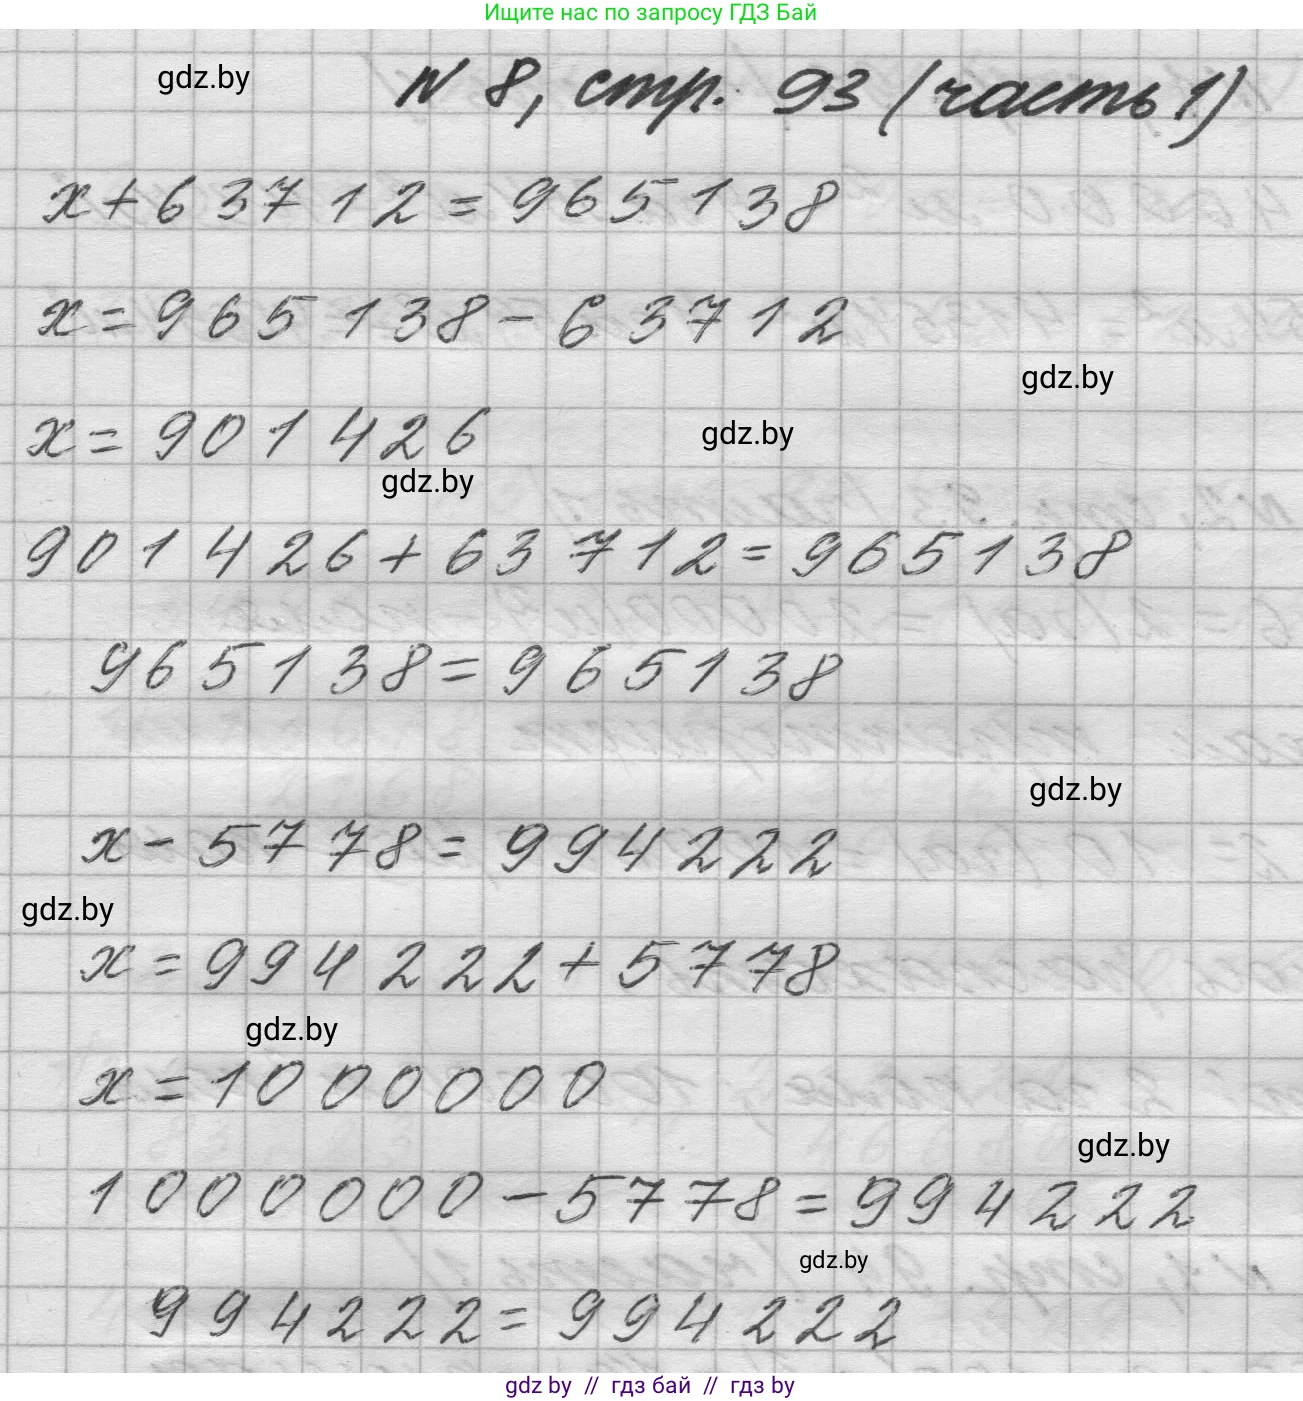 Ищите нас по запросу ГДЗ Бай
gdz.by
N 8, стр. 93 (часть 1)
x+63712=965138
x=965138-63712
gdz.by
x=901426
gdz.by
gdz.by
901426+63712=965138
965138=965138
gdz.by
x-5778=994222
gdz.by
x=994222+5778
gdz.by
x=1000000
gdz.by
1000000-5778=994222
gdz.by
994222=994222
gdz by // гдз бай // гдз by